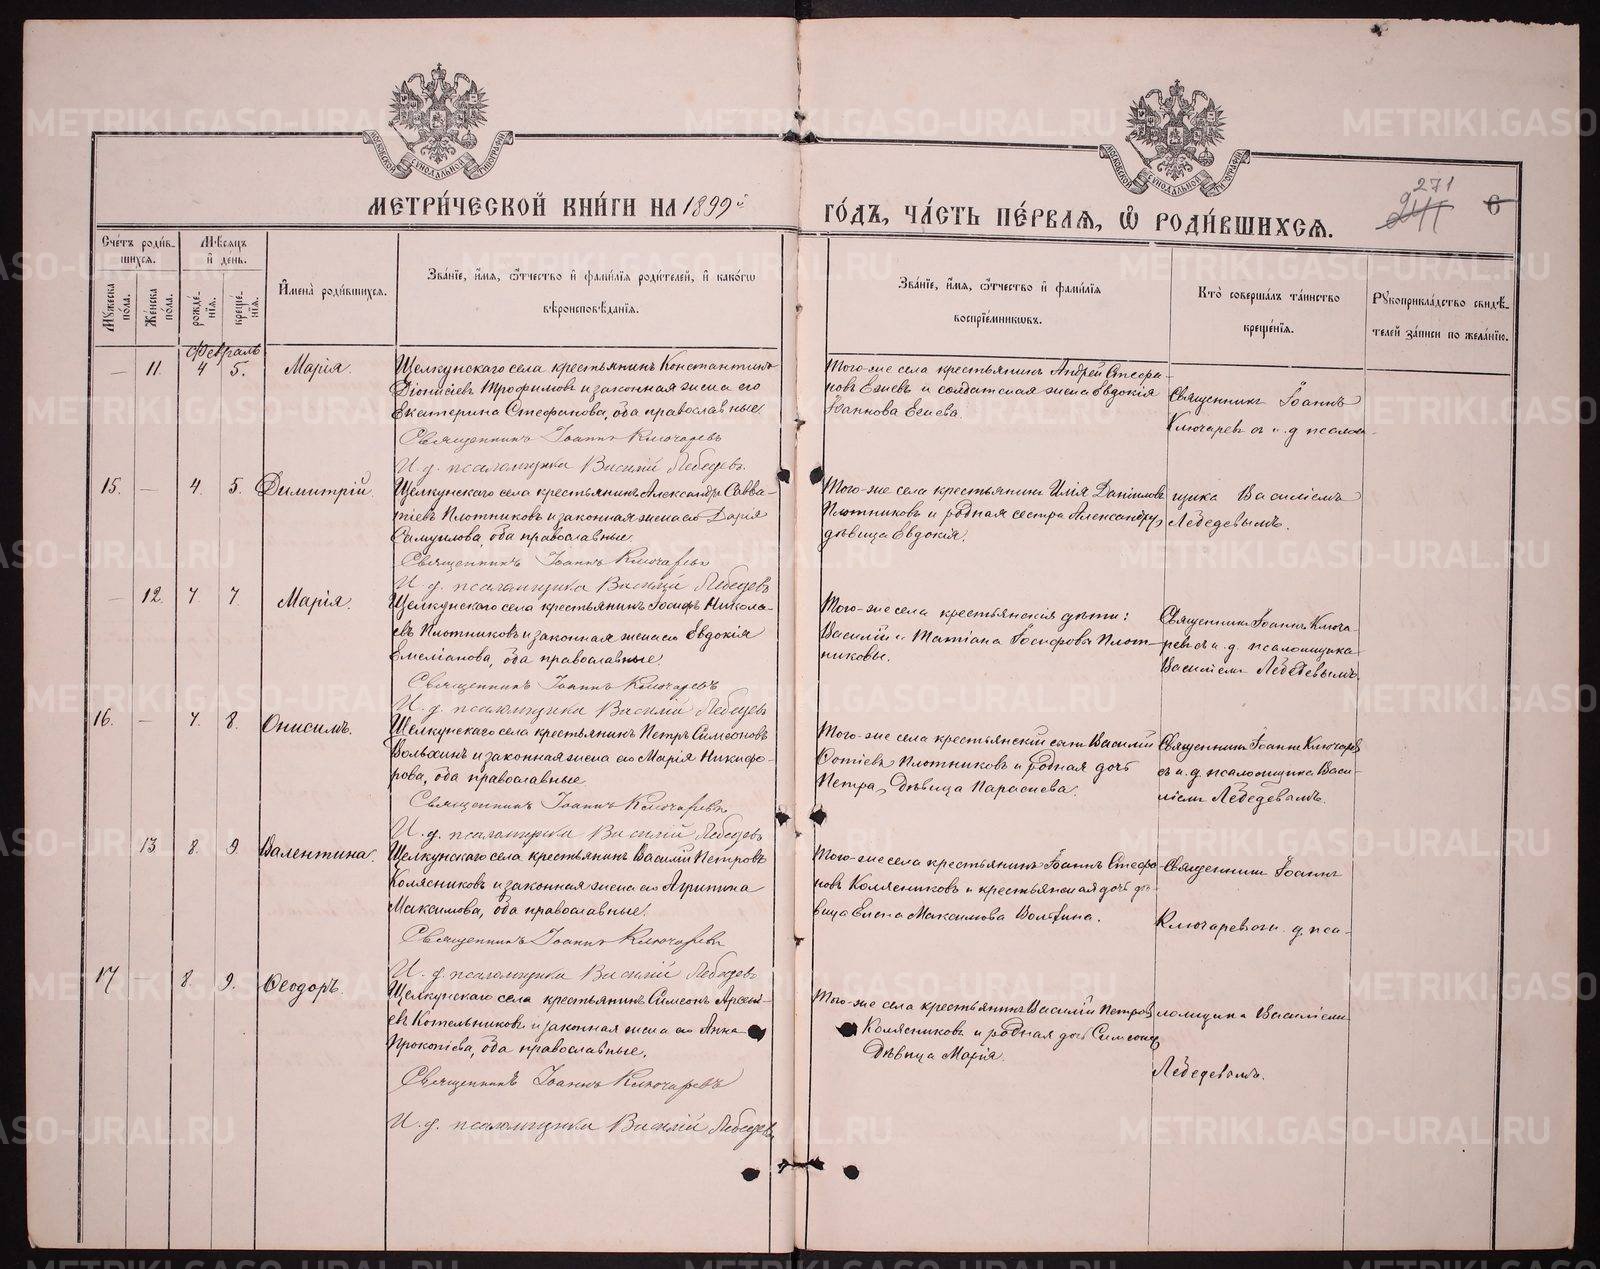 МОСКОВСКОЙ СѴНОДАЛЬНОЙ ТИПОГРАФІИ
МОСКОВСКОЙ СѴНОДАЛЬНОЙ ТИПОГРАФІИ
МЕТРИ́ЧЕСКОЙ КНИ́ГИ НА 1899й
ГО́ДЪ, ЧА́СТЬ ПЕ́РВАѦ, Ѡ҆ РОДИ́ВШИХСѦ.
271
6
Сче́тъ роди́в-
шихсѧ.
Мꙋ́жеска по́ла.
Же́нска по́ла.
Мѣ́сѧцъ
и҆ де́нь.
рожде́-
нїѧ.
креще́-
нїѧ.
И҆мена̀ роди́вшихсѧ.
Зва́нїе, и҆́мѧ, ѻ҆́тчество и҆ фами́лїѧ роди́телей, и҆ како́гѡ
вѣроисповѣ́данїѧ.
Зва́нїе, и҆́мѧ, ѻ҆́тчество и҆ фами́лїѧ
воспрїе́мникѡвъ.
Кто̀ соверша́лъ та́инство
креще́нїѧ.
Рꙋкоприкла́дство свидѣ́-
телей за́писи по жела́нїю.
Февраль
— 11. 4 5. Марія.
Щелкунскаго села крестьянинъ Константинъ
Діонисіевъ Трофимовъ и законная жена его
Екатерина Стефанова, оба православные.
Священникъ Іоаннъ Ключаревъ
И. д. псаломщика Василій Лебедевъ.
Того-же села крестьянинъ Андрей Стефа-
новъ и солдатская жена Евдокія
Іоаннова
Священникъ Іоаннъ
Ключаревъ съ и. д. псалом-
15. — 4. 5. Димитрій.
Щелкунскаго села крестьянинъ Александръ Савва-
тіевъ Плотниковъ и законная жена его Дарія
Самуилова, оба православные.
Священникъ Іоаннъ Ключаревъ
И. д. псаломщика Василій Лебедевъ
Того-же села крестьянинъ Илія Даніиловъ
Плотниковъ и родная сестра Александру,
дѣвица Евдокія.
щика Василіемъ
Лебедевымъ.
— 12. 7. 7. Марія.
Щелкунскаго села крестьянинъ Іосифъ Никола-
евъ Плотниковъ и законная жена его Евдокія
Емеліанова, оба православные.
Священникъ Іоаннъ Ключаревъ
И. д. псаломщика Василій Лебедевъ
Того-же села крестьянскія дѣти:
Василій и Татіана Іосифовы Плот-
никовы.
Священникъ Іоаннъ Ключа-
ревъ съ и. д. псаломщика
Василіемъ Лебедевымъ.
16. — 7. 8. Онисимъ.
Щелкунскаго села крестьянинъ Петръ Симеоновъ
Вольхинъ и законная жена его Марія Никифо-
рова, оба православные.
Священникъ Іоаннъ Ключаревъ
И. д. псаломщика Василій Лебедевъ
Того-же села крестьянскій сынъ Василій
Фотіевъ Плотниковъ и родная дочь
Петра, дѣвица Параскева.
Священникъ Іоаннъ Ключаревъ
съ и. д. псаломщика Васи-
ліемъ Лебедевымъ.
13 8. 9. Валентина.
Щелкунскаго села крестьянинъ Василій Петровъ
Колясниковъ и законная жена его Агриппина
Максимова, оба православные.
Священникъ Іоаннъ Ключаревъ
И. д. псаломщика Василій Лебедевъ
Того-же села крестьянинъ Іоаннъ Стефа-
новъ Колясниковъ и крестьянская дочь дѣ-
вица Елена Максимова Волхина.
Священникъ Іоаннъ
Ключаревъ съ и. д. пса-
17 — 8. 9. Ѳеодоръ.
Щелкунскаго села крестьянинъ Симеонъ Арсеніевъ
Котельниковъ и законная жена его Анна
Прокопіева, оба православные.
Священникъ Іоаннъ Ключаревъ
И. д. псаломщика Василій Лебедевъ
Того-же села крестьянинъ Василій Петровъ
Колясниковъ и родная дочь Симеона,
дѣвица Марія.
ломщика Василіемъ
Лебедевымъ.
METRIKI.GASO-URAL.RU